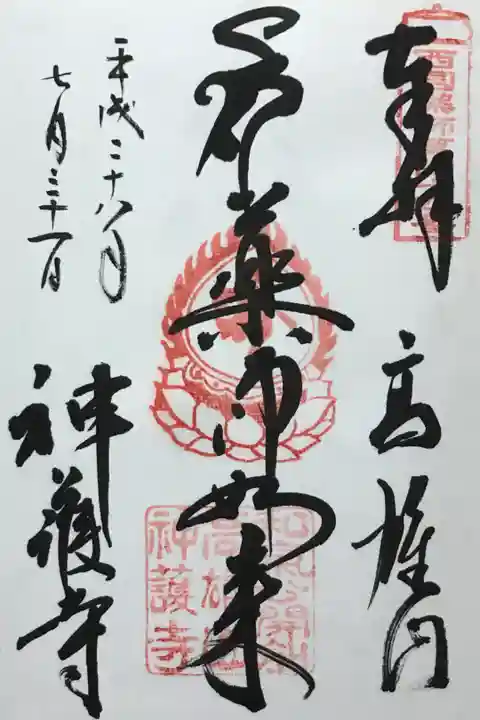 奉拝
高雄山
薬師如来
平成二十八年
七月三十一日
神護寺
西国薬師
高雄山
神護寺